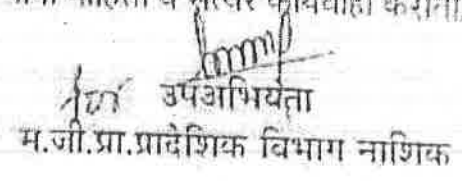 व सत्वर कार्यवाही करावी
उपअभियंता
म.जी.प्रा.प्रादेशिक विभाग नाशिक